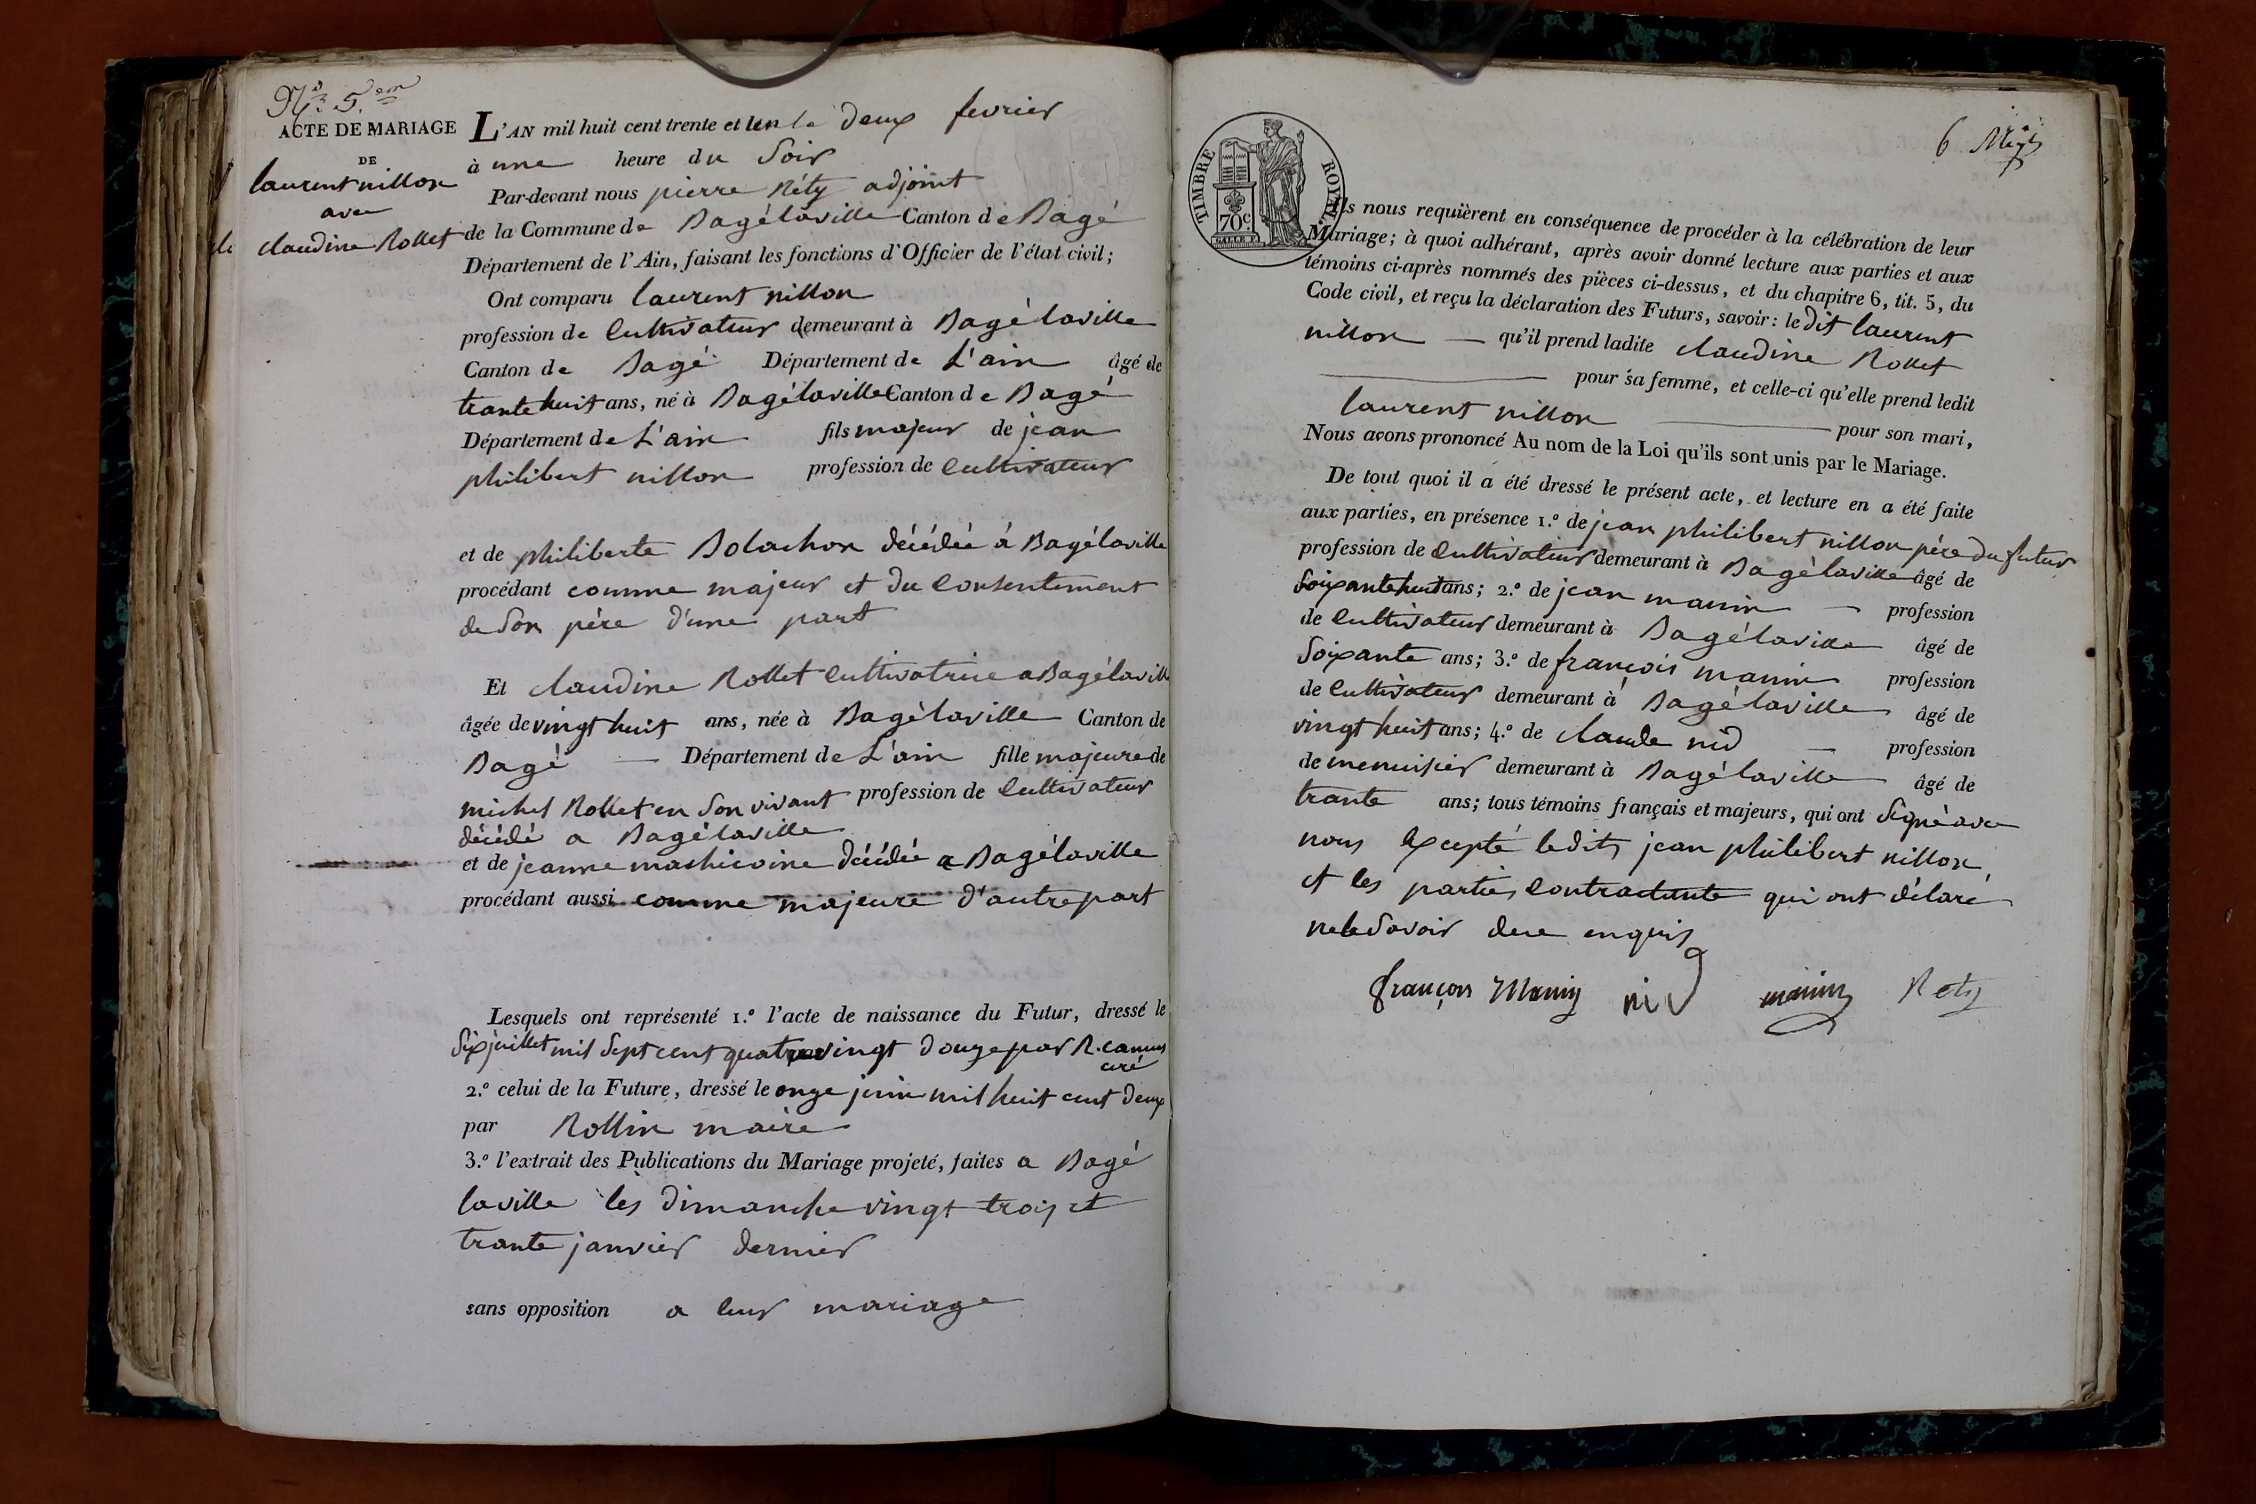 N.° 5.em
ACTE DE MARIAGE
DE
laurent nillon
avec
claudine Rollet
L'AN mil huit cent trente et un le deux fevrier
à une heure du Soir
Par-devant nous pierre Réty adjoint
de la Commune de Bagélaville Canton de Bagé
Département de l'Ain, faisant les fonctions d'Officier de l'état civil;
Ont comparu laurent nillon
profession de Cultivateur demeurant à Bagélaville
Canton de Bagé Département de L'ain âgé de
trante huit ans, né à Bagélaville Canton de Bagé
Département de L'ain fils majeur de jean
philibert nillon profession de Cultivateur
et de philiberte Bolachon décédée à Bagélaville
procédant comme majeur et du Consentement
de Son père d'une part
Et claudine Rollet Cultivatrice a Bagélaville
âgée de vingt huit ans, née à Bagélaville Canton de
Bagé Département de L'ain fille majeure de
michel Rollet en Son vivant profession de Cultivateur
décédé a Bagélaville
et de jeanne mashicoine décédée a Bagélaville
procédant aussi comme majeure d'autre part
Lesquels ont représenté 1.° l'acte de naissance du Futur, dressé le
Six juillet mil Sept cent quatrevingt douze par R. camus
curé
2.° celui de la Future, dressé le onze juin mil huit cent deux
par Rollin maire
3.° l'extrait des Publications du Mariage projeté, faites a Bagé
laville les dimanche vingt trois et
trante janvier dernier
sans opposition a leur mariage
6
TIMBRE ROYAL
70c
Ils nous requièrent en conséquence de procéder à la célébration de leur
Mariage; à quoi adhérant, après avoir donné lecture aux parties et aux
témoins ci-après nommés des pièces ci-dessus, et du chapitre 6, tit. 5, du
Code civil, et reçu la déclaration des Futurs, savoir: le dit laurent
nillon qu'il prend ladite claudine Rollet
pour sa femme, et celle-ci qu'elle prend ledit
laurent nillon pour son mari,
Nous avons prononcé Au nom de la Loi qu'ils sont unis par le Mariage.
De tout quoi il a été dressé le présent acte, et lecture en a été faite
aux parties, en présence 1.° de jean philibert nillon père du futur
profession de Cultivateur demeurant à Bagélaville âgé de
Soixante huit ans; 2.° de jean manin profession
de Cultivateur demeurant à Bagélaville âgé de
Soixante ans; 3.° de françois manin profession
de Cultivateur demeurant à Bagélaville âgé de
vingt huit ans; 4.° de claude nid profession
de menuisier demeurant à Bagélaville âgé de
trante ans; tous témoins français et majeurs, qui ont Signé avec
nous Excepté ledits jean philibert nillon
et les parties Contractante qui ont déclaré
ne le Savoir de ce enquis
françois Manin nid manin Rety